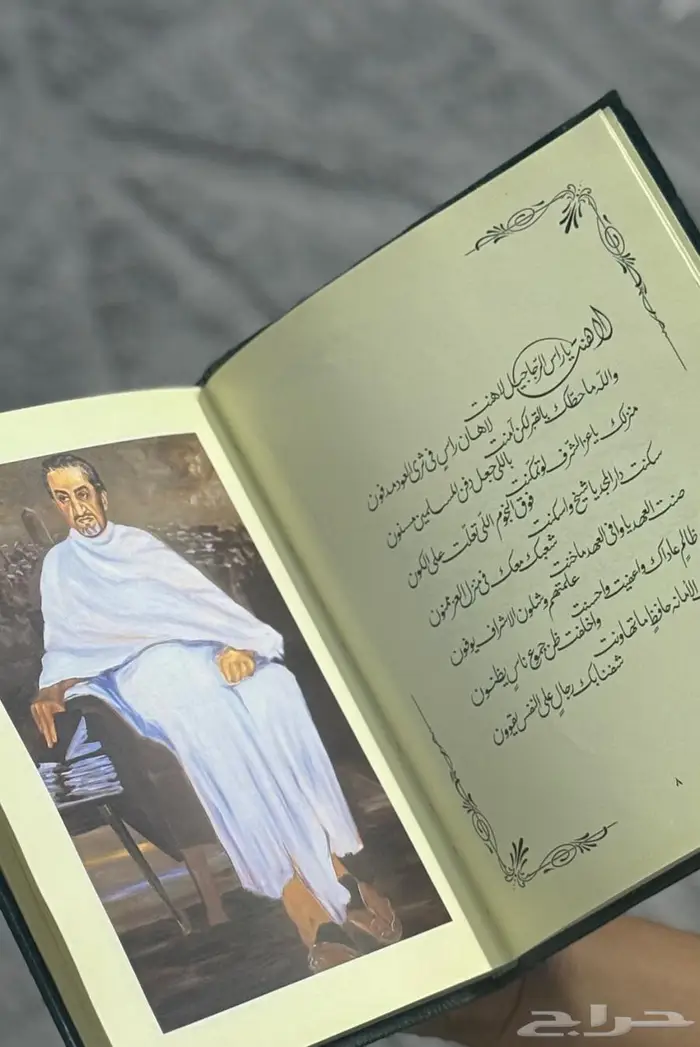 لا هنت يا راس الرجاجيل لا هنت
لا هان راسٍ في ثرى العود مدفون
والله ما حطك بالقبر لكن آمنت
باللي جعل دفن المسلمين مسنون
منزلك يا عز الشرف لو تمكنت
فوق النجوم اللي تعلت على الكون
سكنت دار المجد يا شيخ واسكنت
شعبك معك في منزل العز ممنون
صنت العهد يا وافي العهد ما خنت
علمتهم وشلون الاشراف يوفون
ظالم عاداك واعفيت واحسنت
واخلفت ظن جموع ناسٍ يظنون
الامانه حافظٍ ما تهاونت
شفنا بك رجالٍ على النفس يقوون
٨
حراج